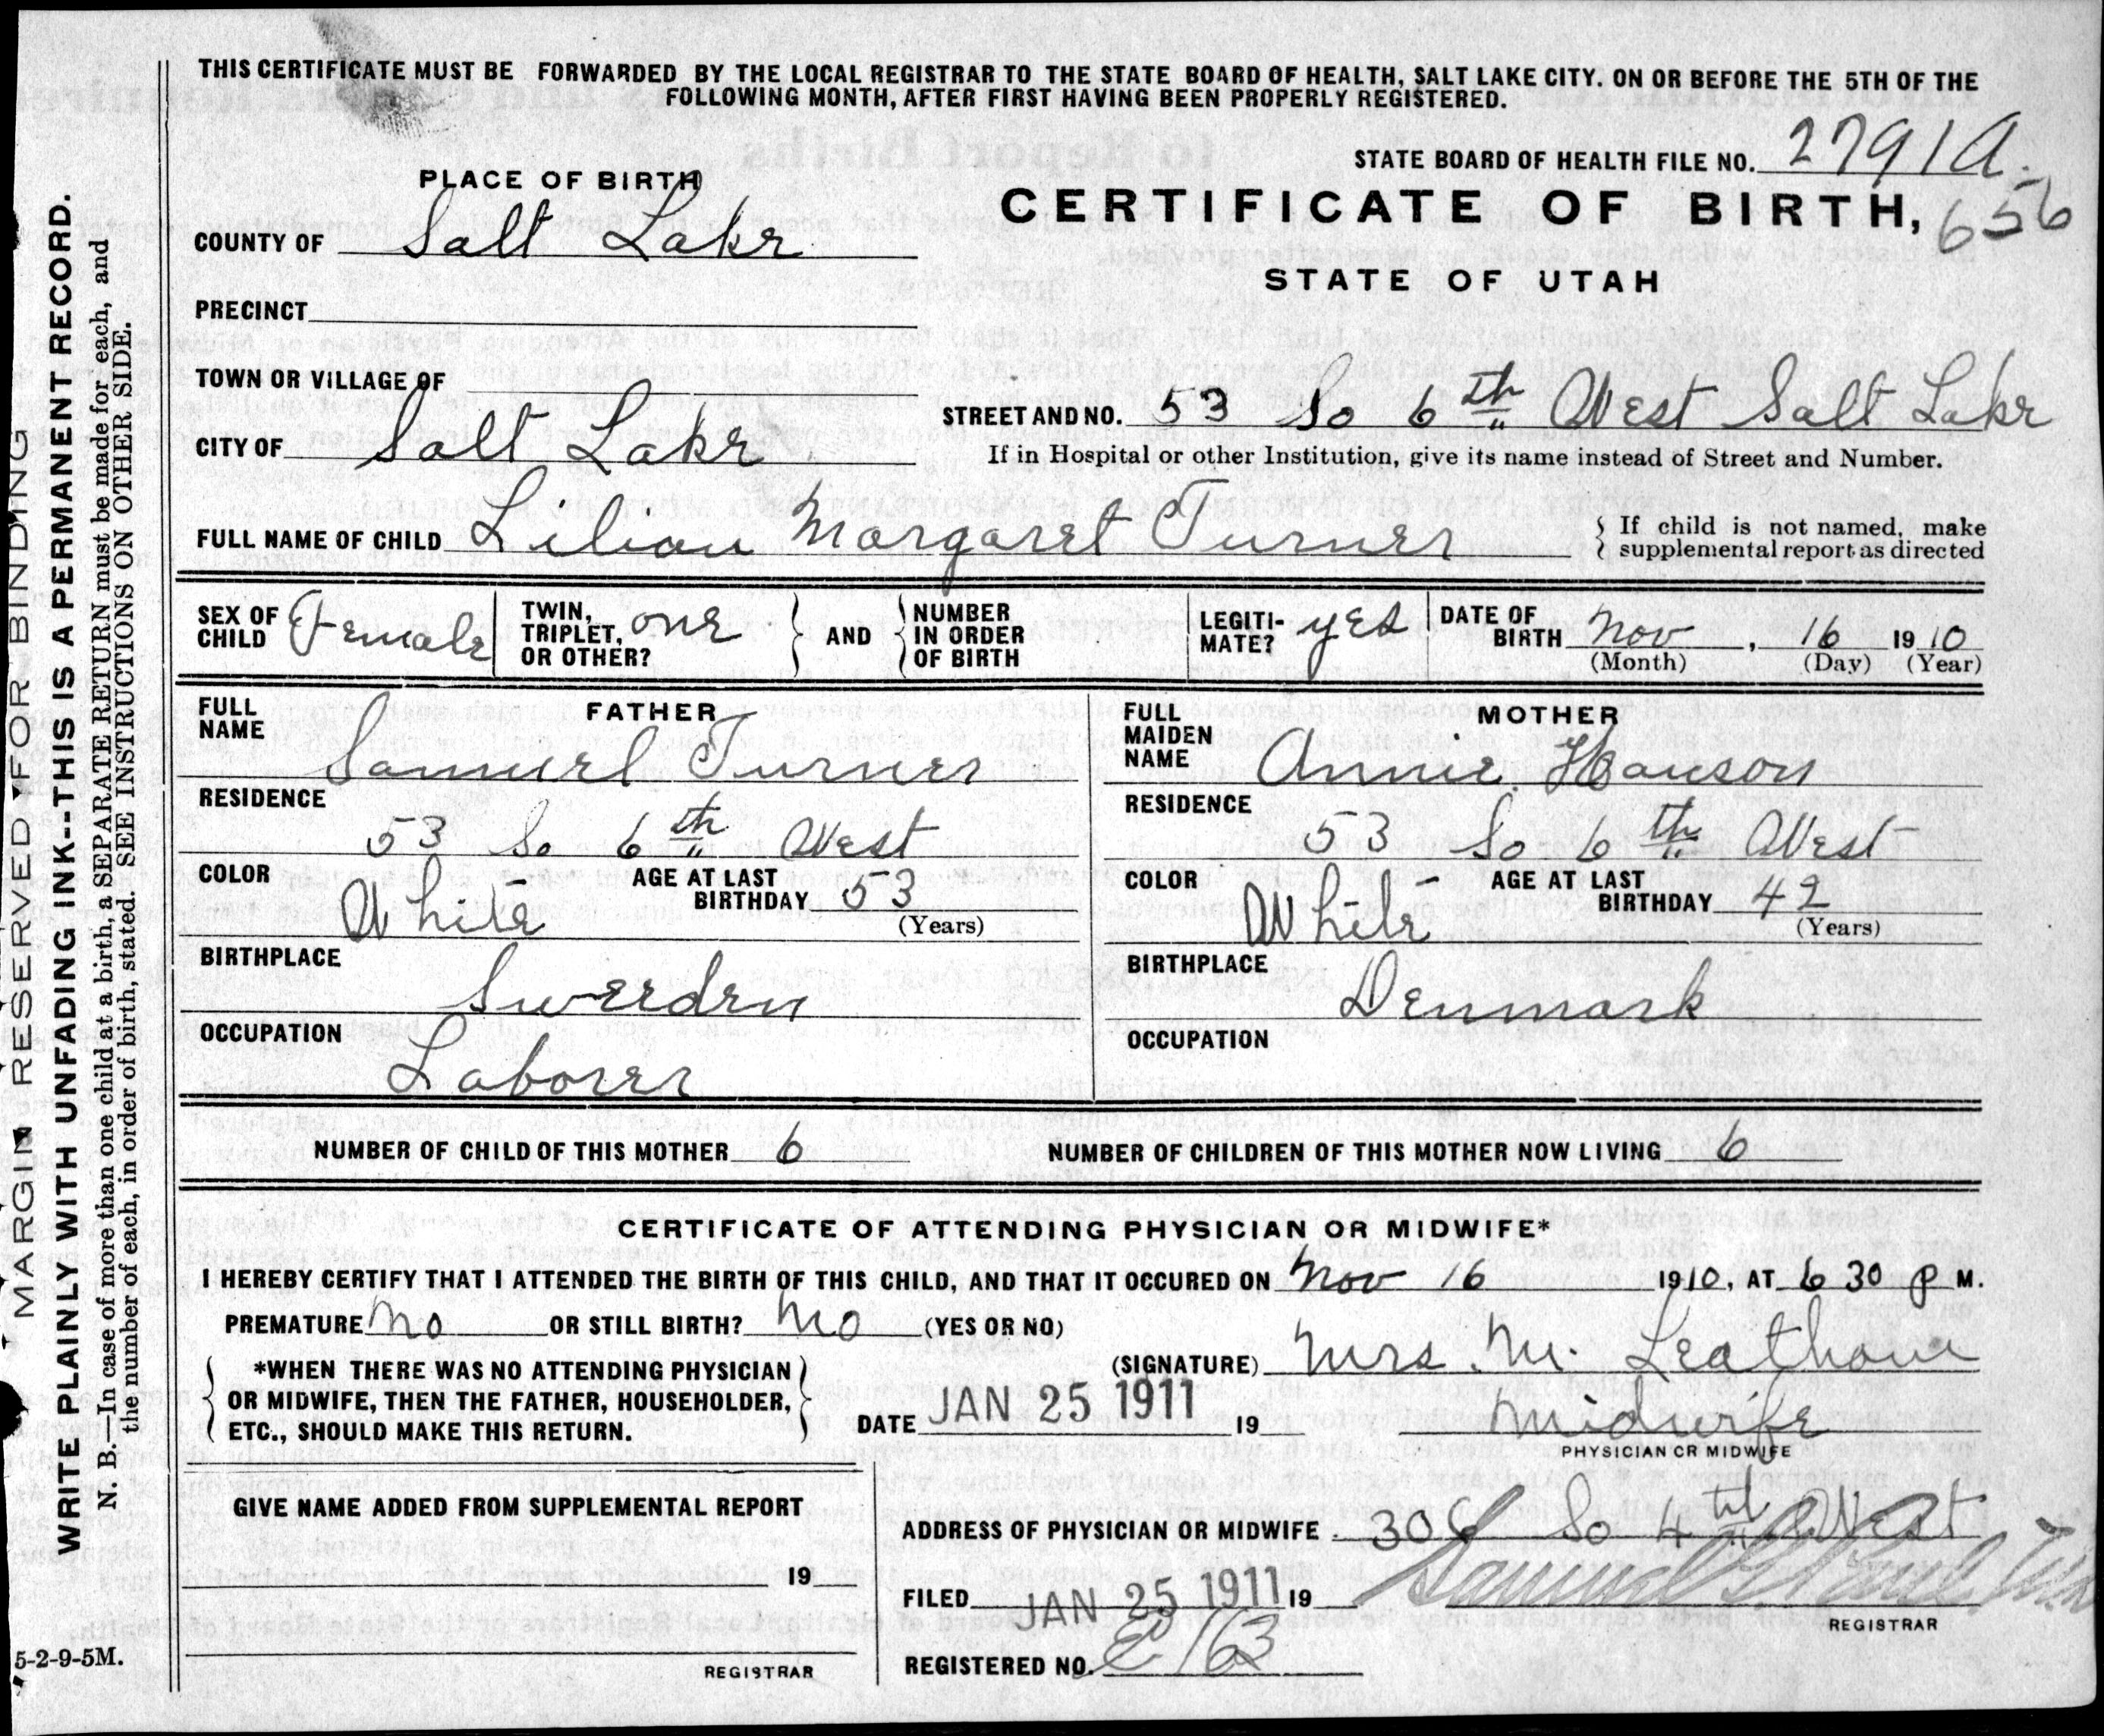 THIS CERTIFICATE MUST BE FORWARDED BY THE LOCAL REGISTRAR TO THE STATE BOARD OF HEALTH, SALT LAKE CITY. ON OR BEFORE THE 5TH OF THE
FOLLOWING MONTH, AFTER FIRST HAVING BEEN PROPERLY REGISTERED.
STATE BOARD OF HEALTH FILE NO. 2791 a.
656
PLACE OF BIRTH
CERTIFICATE OF BIRTH,
STATE OF UTAH
COUNTY OF Salt Lake
PRECINCT
TOWN OR VILLAGE OF
STREET AND NO. 53 So 6th West Salt Lake
CITY OF Salt Lake
If in Hospital or other Institution, give its name instead of Street and Number.
FULL NAME OF CHILD Lilian Margaret Turner
If child is not named, make
supplemental report as directed
SEX OF CHILD Female
TWIN, TRIPLET, OR OTHER? one
AND
NUMBER IN ORDER OF BIRTH
LEGITI-MATE? yes
DATE OF BIRTH Nov, 16 1910
(Month) (Day) (Year)
FATHER
FULL NAME Samuel Turner
RESIDENCE
53 So 6th West
COLOR White
AGE AT LAST BIRTHDAY 53
(Years)
BIRTHPLACE
Sweerden
OCCUPATION
Laborer
MOTHER
FULL MAIDEN NAME Annie Hanson
RESIDENCE
53 So 6th West
COLOR White
AGE AT LAST BIRTHDAY 42
(Years)
BIRTHPLACE
Denmark
OCCUPATION
NUMBER OF CHILD OF THIS MOTHER 6
NUMBER OF CHILDREN OF THIS MOTHER NOW LIVING 6
CERTIFICATE OF ATTENDING PHYSICIAN OR MIDWIFE*
I HEREBY CERTIFY THAT I ATTENDED THE BIRTH OF THIS CHILD, AND THAT IT OCCURED ON Nov 16 1910, AT 6 30 P M.
PREMATURE No OR STILL BIRTH? No (YES OR NO)
*WHEN THERE WAS NO ATTENDING PHYSICIAN
OR MIDWIFE, THEN THE FATHER, HOUSEHOLDER,
ETC., SHOULD MAKE THIS RETURN.
(SIGNATURE) Mrs. M. Leatham
DATE JAN 25 1911 19
Midwife
PHYSICIAN OR MIDWIFE
GIVE NAME ADDED FROM SUPPLEMENTAL REPORT
19
REGISTRAR
ADDRESS OF PHYSICIAN OR MIDWIFE So 4th West
FILED JAN 25 1911 19
Samuel G. Paul
REGISTRAR
REGISTERED NO. 163
MARGIN RESERVED FOR BINDING
WRITE PLAINLY WITH UNFADING INK--THIS IS A PERMANENT RECORD.
N. B.—In case of more than one child at a birth, a SEPARATE RETURN must be made for each, and
the number of each, in order of birth, stated. SEE INSTRUCTIONS ON OTHER SIDE.
5-2-9-5M.